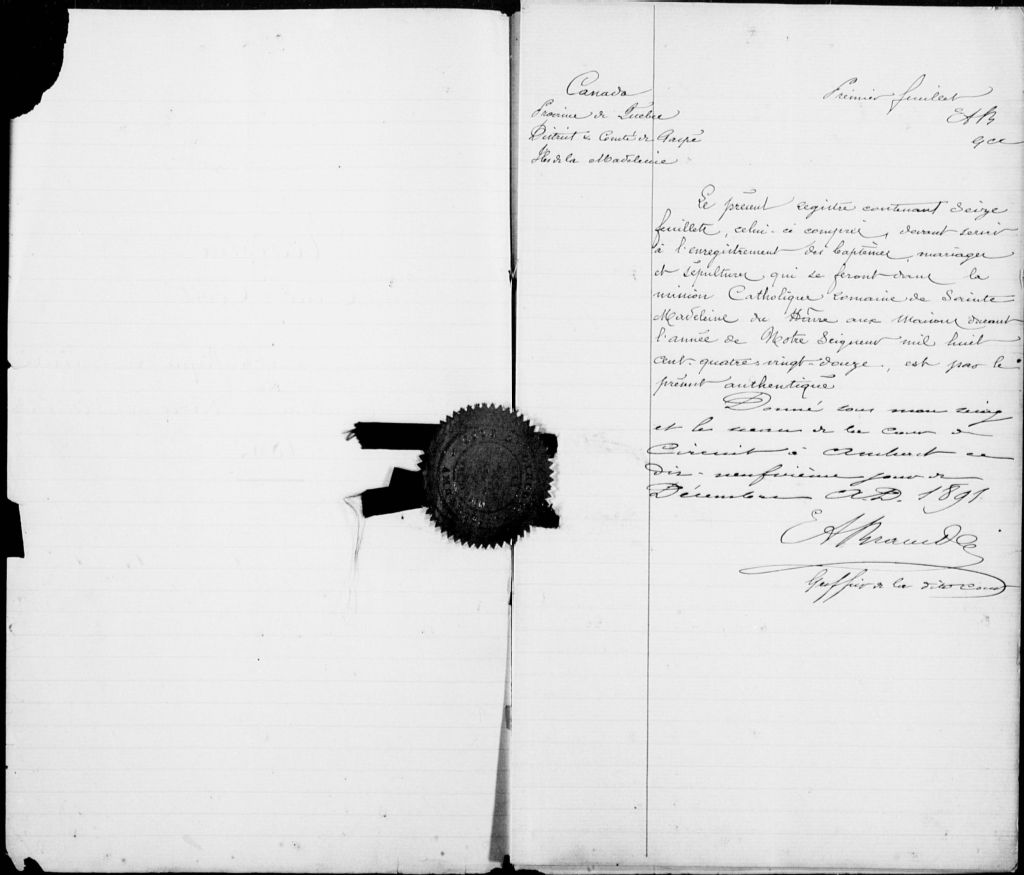 Canada
Province de Québec
District & Comté de Gaspé
Iles de la Madeleine
Premier feuillet
EAB
gcc
Le présent registre contenant Seize
feuillets, celui-ci compris, devant servir
à l'enregistrement des baptêmes, mariages
et sépultures qui se feront dans la
mission Catholique romaine de Sainte
Madeleine du Hâvre aux Maisons durant
l'année de Notre Seigneur mil huit
cent-quatre-vingt-douze, est par le
présent authentiqué
Donné sous mon seing
et le sceau de la cour de
Circuit à Amherst ce
dix-neufvième jour de
Décembre A.D. 1891.
Greffier de la dite cour